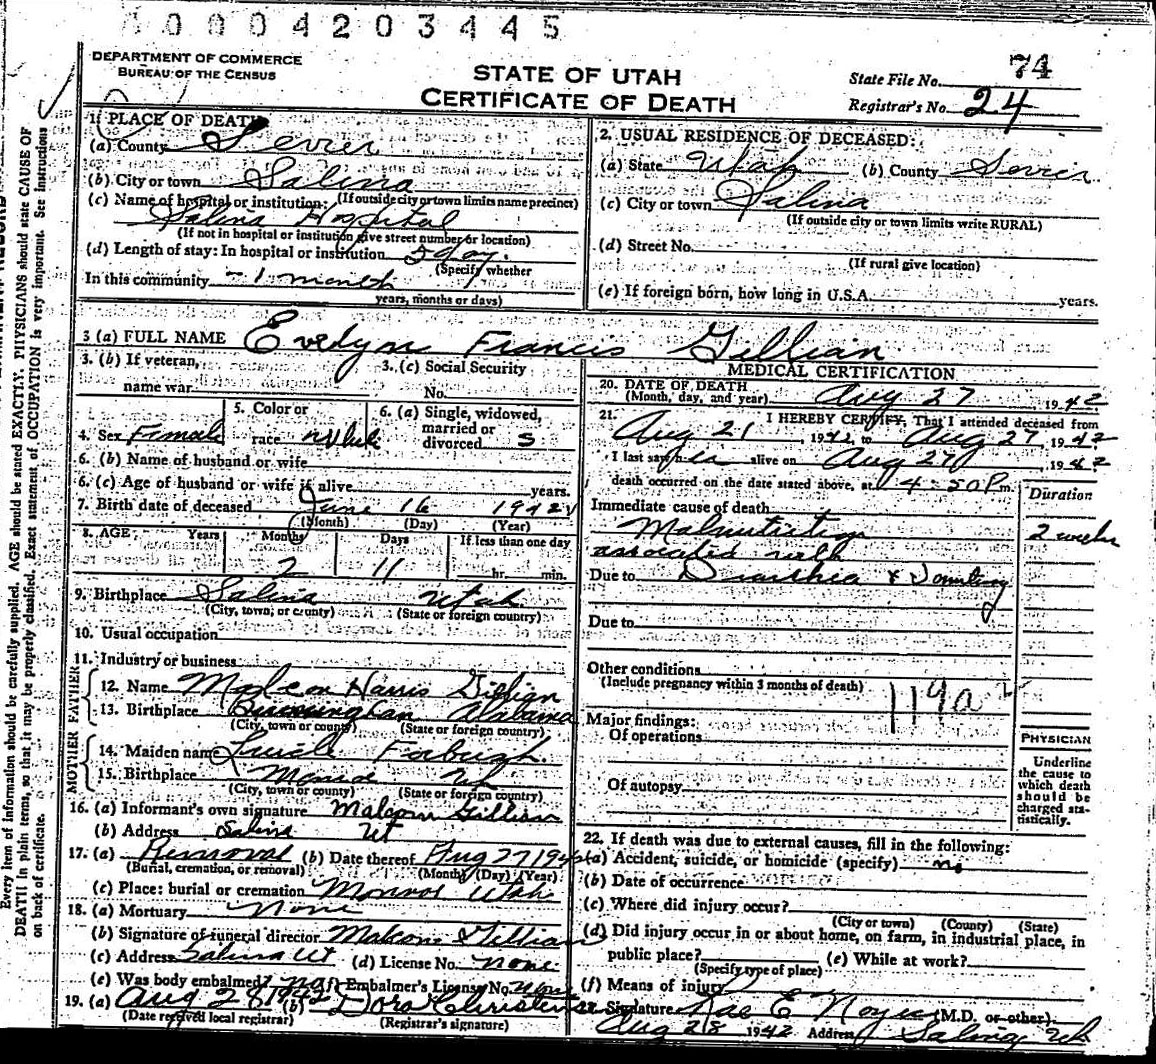 0004203445
DEPARTMENT OF COMMERCE
BUREAU OF THE CENSUS
STATE OF UTAH
CERTIFICATE OF DEATH
State File No. 74
Registrar's No. 24
Every item of information should be carefully supplied. AGE should be stated EXACTLY. PHYSICIANS should state CAUSE OF
DEATH in plain terms, so that it may be properly classified. Exact statement of OCCUPATION is very important. See instructions
on back of certificate.
1. PLACE OF DEATH
(a) County Sevier
(b) City or town Salina
(If outside city or town limits name precinct)
(c) Name of hospital or institution:
Salina Hospital
(If not in hospital or institution give street number or location)
(d) Length of stay: In hospital or institution 5 day.
(Specify whether
In this community 1 month
years, months or days)
2. USUAL RESIDENCE OF DECEASED:
(a) State Utah (b) County Sevier
(c) City or town Salina
(If outside city or town limits write RURAL)
(d) Street No.
(If rural give location)
(e) If foreign born, how long in U.S.A. years.
3 (a) FULL NAME Evelyn Francis Gillian
3. (b) If veteran,
name war
3. (c) Social Security
No.
4. Sex Female
5. Color or
race White
6. (a) Single, widowed,
married or
divorced S
6. (b) Name of husband or wife
6. (c) Age of husband or wife if alive years.
7. Birth date of deceased June 16 1942
(Month) (Day) (Year)
8. AGE: Years Months Days If less than one day
2 11 hr. min.
9. Birthplace Salina Utah
(City, town, or county) (State or foreign country)
10. Usual occupation
11. Industry or business
FATHER
12. Name Malcom Harris Gillian
13. Birthplace Birmingham Alabama
(City, town or county) (State or foreign country)
MOTHER
14. Maiden name
15. Birthplace Monroe Ut
(City, town or county) (State or foreign country)
16. (a) Informant's own signature Malcom Gillian
(b) Address Salina Ut
17. (a) Removal (b) Date thereof Aug 27 1942
(Burial, cremation, or removal) (Month) (Day) (Year)
(c) Place: burial or cremation Monroe Utah
18. (a) Mortuary None
(b) Signature of funeral director Malcom Gillian
(c) Address Salina Ut (d) License No. None
(e) Was body embalmed? no (f) Embalmer's License No. None
19. (a) Aug 28 1942 (b) Dora Christensen
(Date received local registrar) (Registrar's signature)
MEDICAL CERTIFICATION
20. DATE OF DEATH
(Month, day, and year) Aug 27 1942
21. I HEREBY CERTIFY, That I attended deceased from
Aug 21 1942 to Aug 27, 1942
I last saw her alive on Aug 27, 1942
death occurred on the date stated above, at 4:50 P m.
Duration
Immediate cause of death
Malnutrition 2 weeks
associated with
Due to Diarrhea & Vomiting
Due to
Other conditions
(Include pregnancy within 3 months of death)
119a
Major findings:
Of operations
Of autopsy
PHYSICIAN
Underline
the cause to
which death
should be
charged sta-
tistically.
22. If death was due to external causes, fill in the following:
(a) Accident, suicide, or homicide (specify) no
(b) Date of occurrence
(c) Where did injury occur?
(City or town) (County) (State)
(d) Did injury occur in or about home, on farm, in industrial place, in
public place? (e) While at work?
(Specify type of place)
(f) Means of injury
Signature Rae E Noyes (M.D. or other)
Aug 28 1942 Address Salina Ut